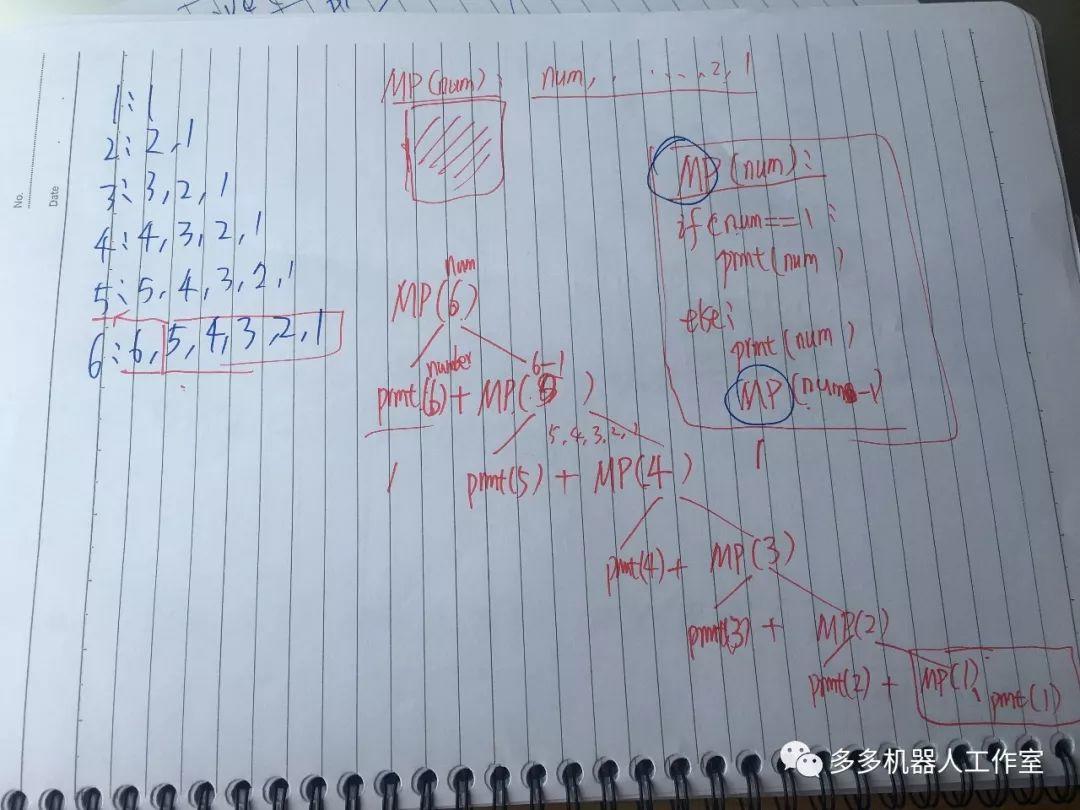 No.
Date
1:1
2:2,1
3:3,2,1
4:4,3,2,1
5:5,4,3,2,1
6:6,5,4,3,2,1
MP(num): num,......,2,1
MP(num):
if(num==1:
prnt(num)
else:
prnt(num)
MP(num-1)
num
MP(6)
number
6-1
prnt(6)+MP(5)
5,4,3,2,1
prnt(5)+MP(4)
prnt(4)+MP(3)
prnt(3)+MP(2)
prnt(2)+MP(1):
prnt(1)
多多机器人工作室